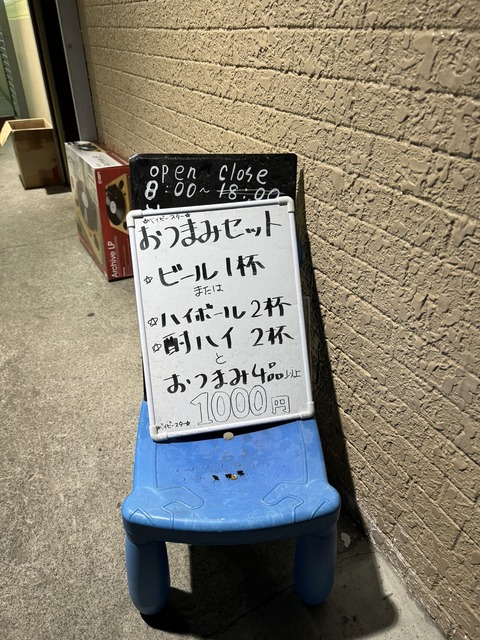 open close
8:00~18:00
☆ベイビースター☆
おつまみセット
☆ビール1杯
または
☆ハイボール2杯
☆酎ハイ 2杯
と
おつまみ4品以上
1000円
ベイビースター☆
Archive LP